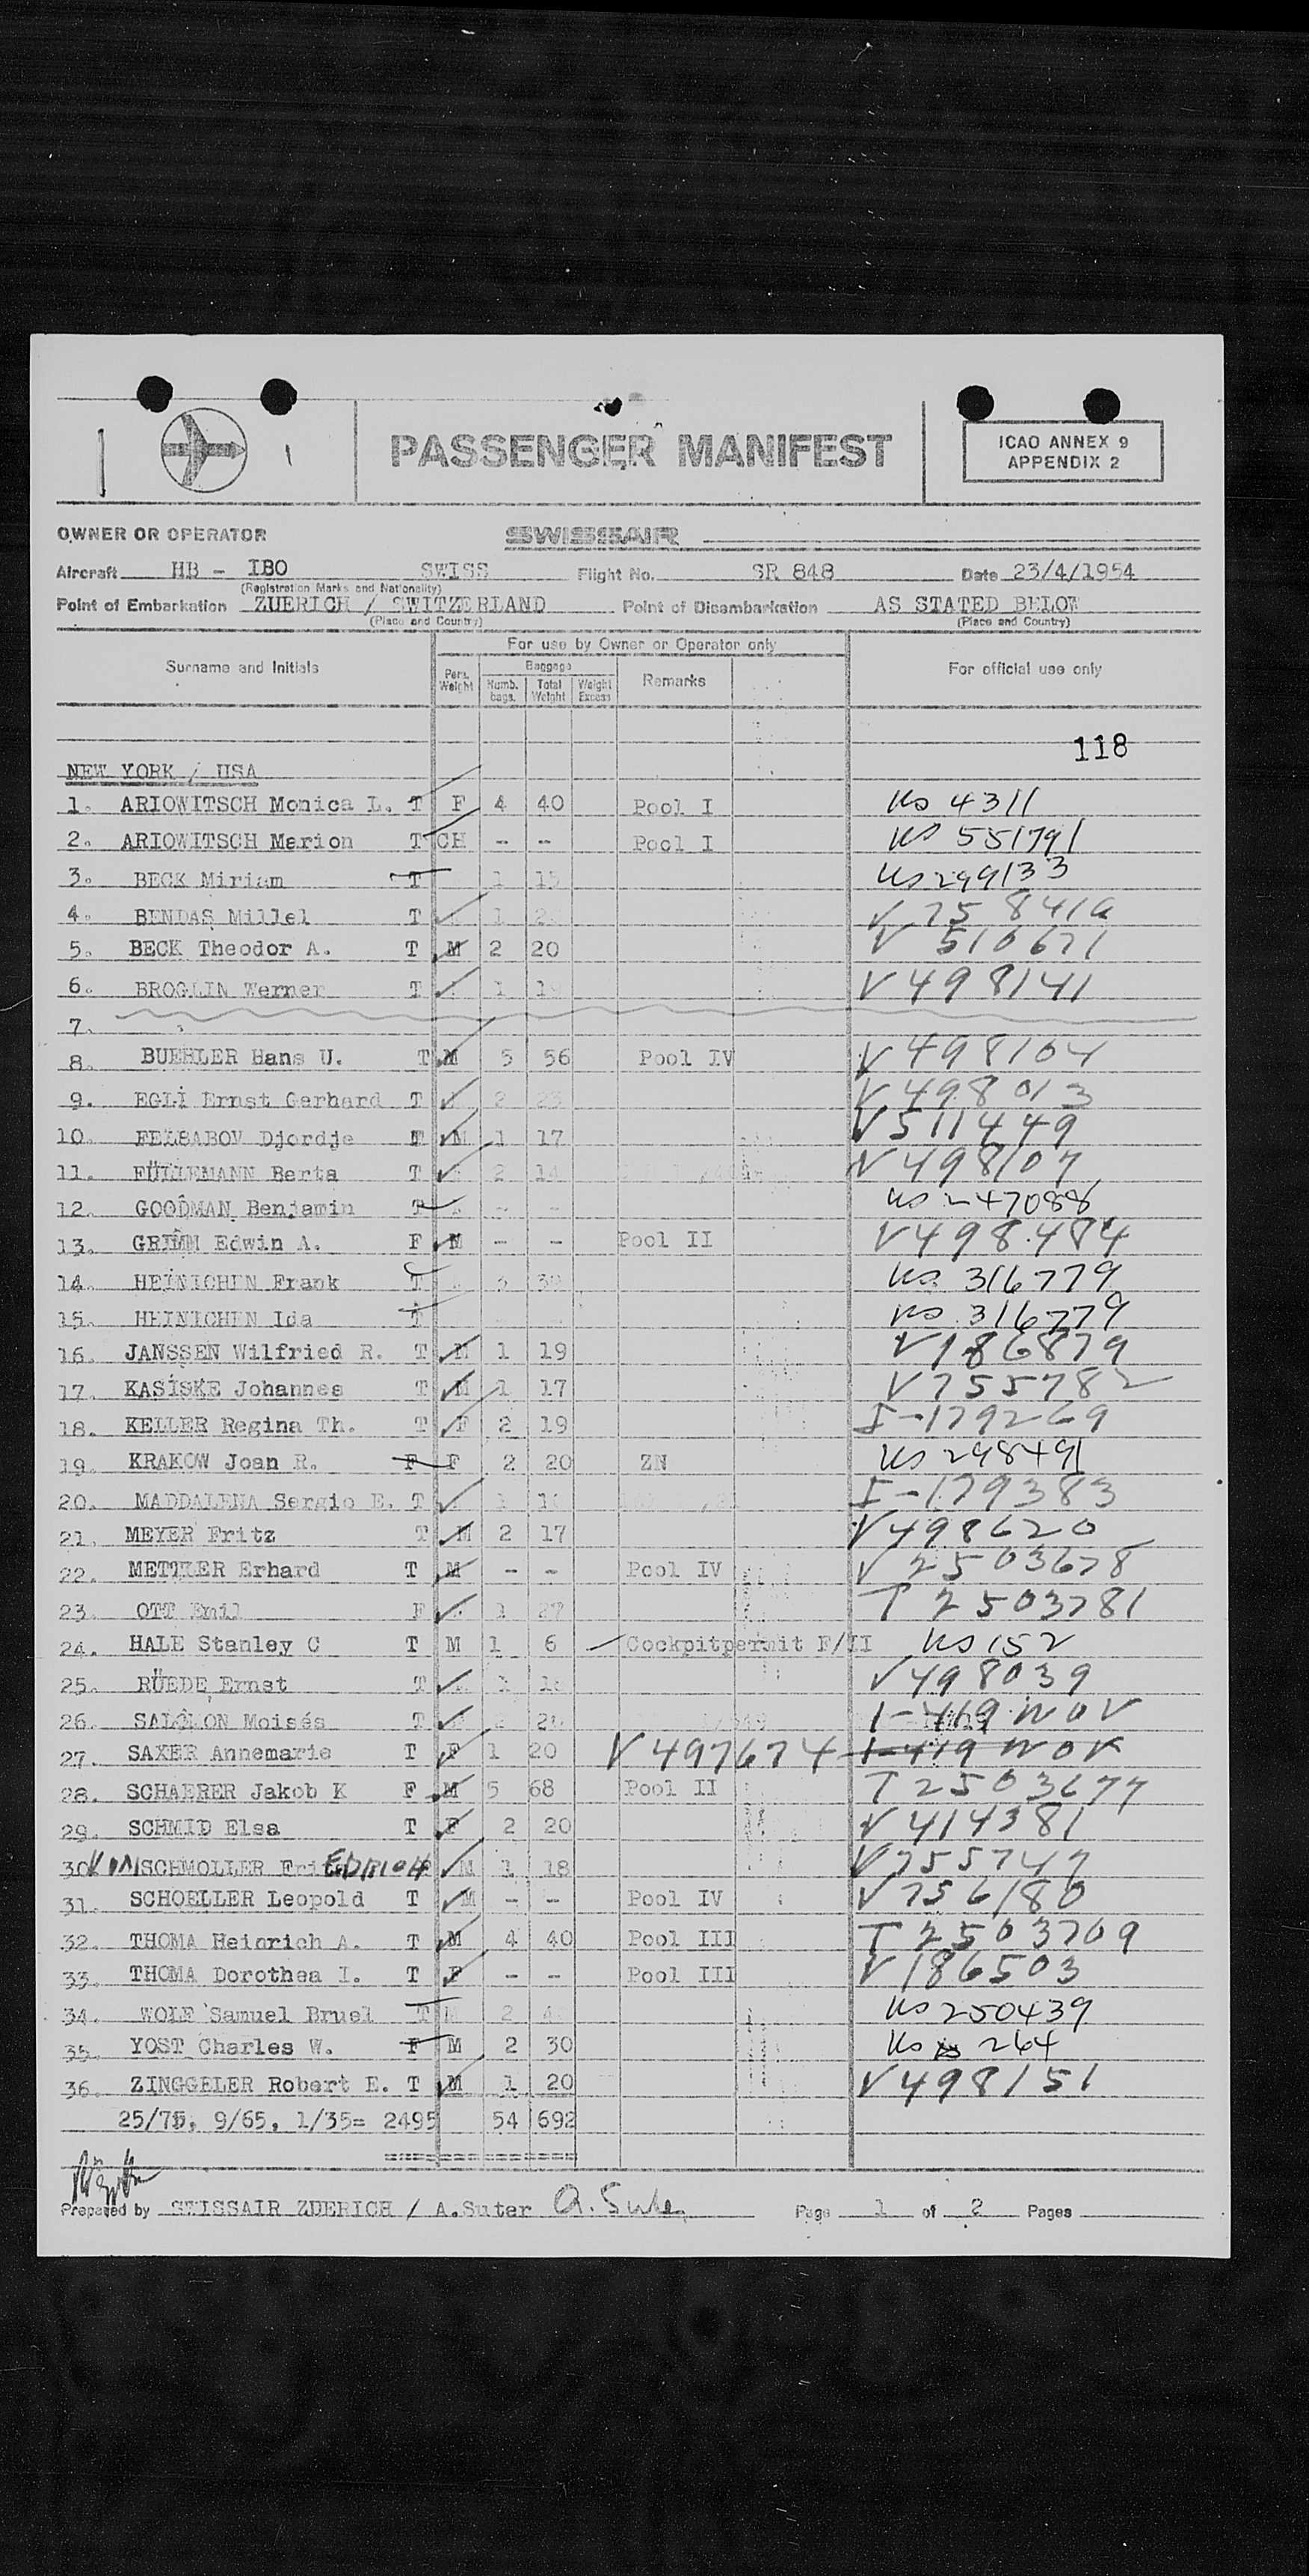 PASSENGER MANIFEST
ICAO ANNEX 9
APPENDIX 2
OWNER OR OPERATOR SWISSAIR
Aircraft HB - IBO SWISS Flight No. SR 848 Date 23/4/1954
(Registration Marks and Nationality)
Point of Embarkation ZUERICH / SWITZERLAND Point of Disembarkation AS STATED BELOW
(Place and Country) (Place and Country)
For use by Owner or Operator only
Surname and Initials Pers. Weight Baggage Numb. bags. Total Weight Weight Excess Remarks For official use only
118
NEW YORK / USA
1. ARIOWITSCH Monica L. T F 4 40 Pool I US 4311
2. ARIOWITSCH Marion T CH - - Pool I US 551791
3. BECK Miriam T 1 15 US 299133
4. BENDAS Millel T 1 V 758419
5. BECK Theodor A. T M 2 20 V 510671
6. BROGLIN Werner T 1 V 498141
7.
8. BUEHLER Hans U. T M 5 56 Pool IV V 498104
9. EGLI Ernst Gerhard T 2 23 V 498013
10. FELBABOV Djordje T M 1 17 V 511449
11. FÜLLEMANN Berta T 2 14 V 498107
12. GOODMAN Benjamin T - - US 247088
13. GRIMM Edwin A. F M - - Pool II V 498484
14. HEINICHEN Frank T US 316779
15. HEINICHEN Ida T US 316779
16. JANSSEN Wilfried R. T M 1 19 V 186879
17. KASISKE Johannes T M 1 17 V 755782
18. KELLER Regina Th. T F 2 19 I-179269
19. KRAKOW Joan R. F F 2 20 ZN US 298491
20. MADDALENA Sergio E. T 1 I-179383
21. MEYER Fritz T M 2 17 V 498620
22. METTLER Erhard T M - - Pool IV V 2503678
23. OTT Emil F 1 27 T 2503781
24. HALE Stanley C T M 1 6 Cockpitpermit F/II US 152
25. RÜEDE Ernst T V 498039
26. SALOMON Moisés T I-419 NOV
27. SAXER Annemarie T F 1 20 V 497674 I-419 NOV
28. SCHAERER Jakob K F M 5 68 Pool II T 2503677
29. SCHMID Elsa T F 2 20 V 414381
30. VON SCHMOLLER FriEDRICH M 1 18 V 755747
31. SCHOELLER Leopold T M - - Pool IV V 756180
32. THOMA Heinrich A. T M 4 40 Pool III T 2503709
33. THOMA Dorothea I. T F - - Pool III V 186503
34. WOLF Samuel Bruel T M 2 US 250439
35. YOST Charles W. F M 2 30 US 264
36. ZINGGELER Robert E. T M 1 20 V 498151
25/75, 9/65, 1/35= 2495 54 692
Prepared by SWISSAIR ZUERICH / A.Suter A. Suter Page 1 of 2 Pages